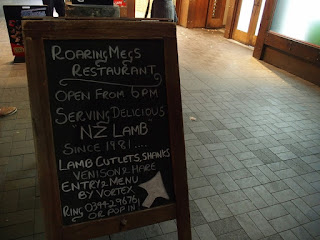 Roaring Megs
Restaurant
Open from 6pm
Serving Delicious
"NZ Lamb"
Since 1981....
Lamb Cutlets, Shanks
Venison & Hare
Entry & Menu
By Vortex
Ring 0344-29676
or pop in